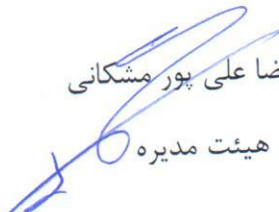 ضا علی پور مشکانی
هیئت مدیره